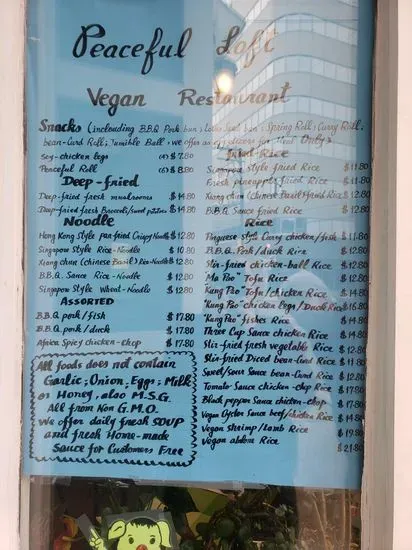 Peaceful Loft
Vegan Restaurant
Snacks (inclouding B.B.Q Pork bun; Lotus Seed bun; Spring Roll; Curry Roll,
bean-Curd Roll; Tumible Ball; we offer as for Meal Only)
Soy-chicken legs (4) $7.80
Peaceful Roll (6) $8.80
Deep-fried
Deep-fried fresh mushrooms $14.80
Deep-fried fresh Broccoli/sweet potatoes $14.80
Noodle
Hong Kong style pan-fried Crispy Noodle $12.80
Singapore Style Rice-Noodle $10.80
Xiang chun (Chinese Basil) Rice-Noodle $12.80
B.B.Q. Sauce Rice-Noodle $12.80
Singapore Style Wheat-Noodle $12.80
ASSORTED
B.B.Q pork/fish $17.80
B.B.Q pork/duck $17.80
Africa Spicy chicken-chop $17.80
All foods does not contain
Garlic; Onion; Eggs; Milk
or Honey, also M.S.G.
All from Non G.M.O.
We offer daily fresh SOUP
and fresh Home-made
Sauce for Customers Free
Fried-Rice
Singapore style fried Rice $11.80
Fresh pineapple fried Rice $11.80
Xiang chun (Chinese Basil) fried Rice $12.80
B.B.Q Sauce fried Rice $12.80
Rice
Portuguese style Curry chicken/fish $11.80
B.B.Q. Pork/duck Rice $12.80
Stir-fried chicken-ball Rice $12.80
"Ma Po" Tofu Rice $12.80
"Kung Pao" Tofu/chicken Rice $14.80
"Kung Pao" chicken legs/Duck Rice $16.80
"Kung Pao" fishes Rice
Three Cup Sauce chicken Rice $14.80
Stir-fried fresh vegetable Rice
Stir-fried Diced bean-curd Rice
Sweet/sour Sauce bean-Curd Rice $12.80
Tomato Sauce chicken-chop Rice $17.80
Black pepper Sauce chicken-chop $17.80
Vegan Oyster Sauce beef/chicken Rice $14.80
Vegan shrimp/lamb Rice $19.80
Vegan abalone Rice $21.80